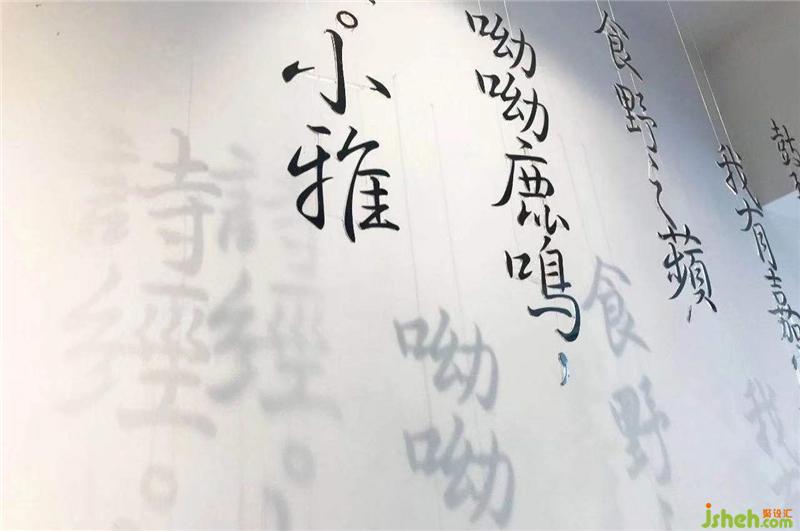 。小雅
呦呦鹿鳴，
食野之蘋，
我有嘉
鼓
詩經。
詩經。
呦呦
食野
我
聚设汇
jsheh.com